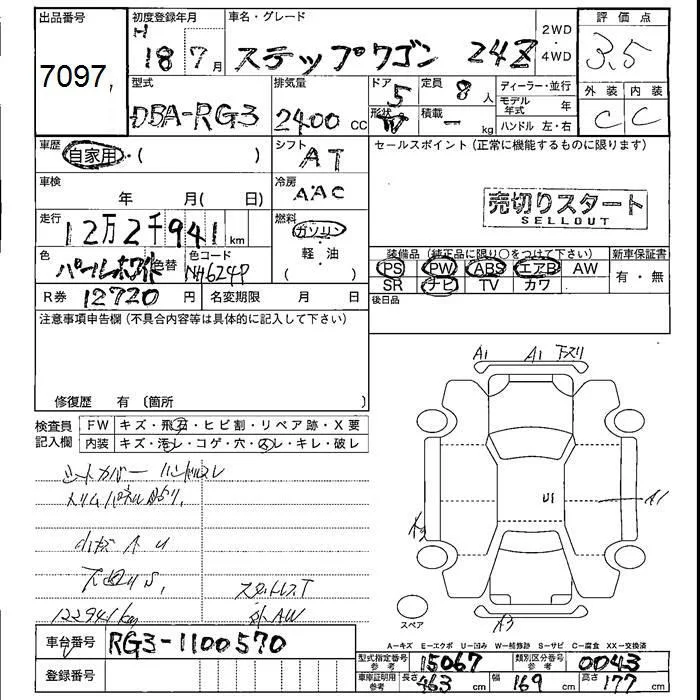 出品番号 初度登録年月 車名・グレード 2WD・4WD 評価点
7097 H 18 7月 ステップワゴン 24Z 3.5
型式 排気量 ドア 5 定員 8人 ディーラー・並行 外装 内装
DBA-RG3 2400 CC 形状 W 積載 - kg モデル年式 年 C C
ハンドル 左・右
車歴 自家用・( ) シフト AT セールスポイント (正常に機能するものに限ります)
車検 年 月( 日) 冷房 AAC
売切りスタート
SELLOUT
走行 12万2千941 km 燃料 ガソリン・軽・油 ( )
色 パールホワイト 色替 色コード NH624P
装備品 (純正品に限り○をつけて下さい) 新車保証書
PS PW ABS エアB AW 有・無
SR ナビ TV カワ
R券 12720 円 名変期限 月 日 後日品
注意事項申告欄 (不具合内容等は具体的に記入して下さい)
修復歴 有 〔箇所 〕
検査員記入欄 FW キズ・飛石・ヒビ割・リペア跡・X要
内装 キズ・汚レ・コゲ・穴・スレ・キレ・破レ
シートカバー ハンドルスレ
小キズ A U
スタットレスT
122941km 外AW
A1 A1 下スリ
U1 A1
A3
スペア
A=キズ E=エクボ U=凹み W=補修跡 S=サビ C=腐食 XX=交換済
車台番号 RG3-1100570
登録番号
型式指定番号 参考 15067 類別区分番号 参考 0043
車庫証明用 参考 長さ 463 cm 幅 169 cm 高さ 177 cm